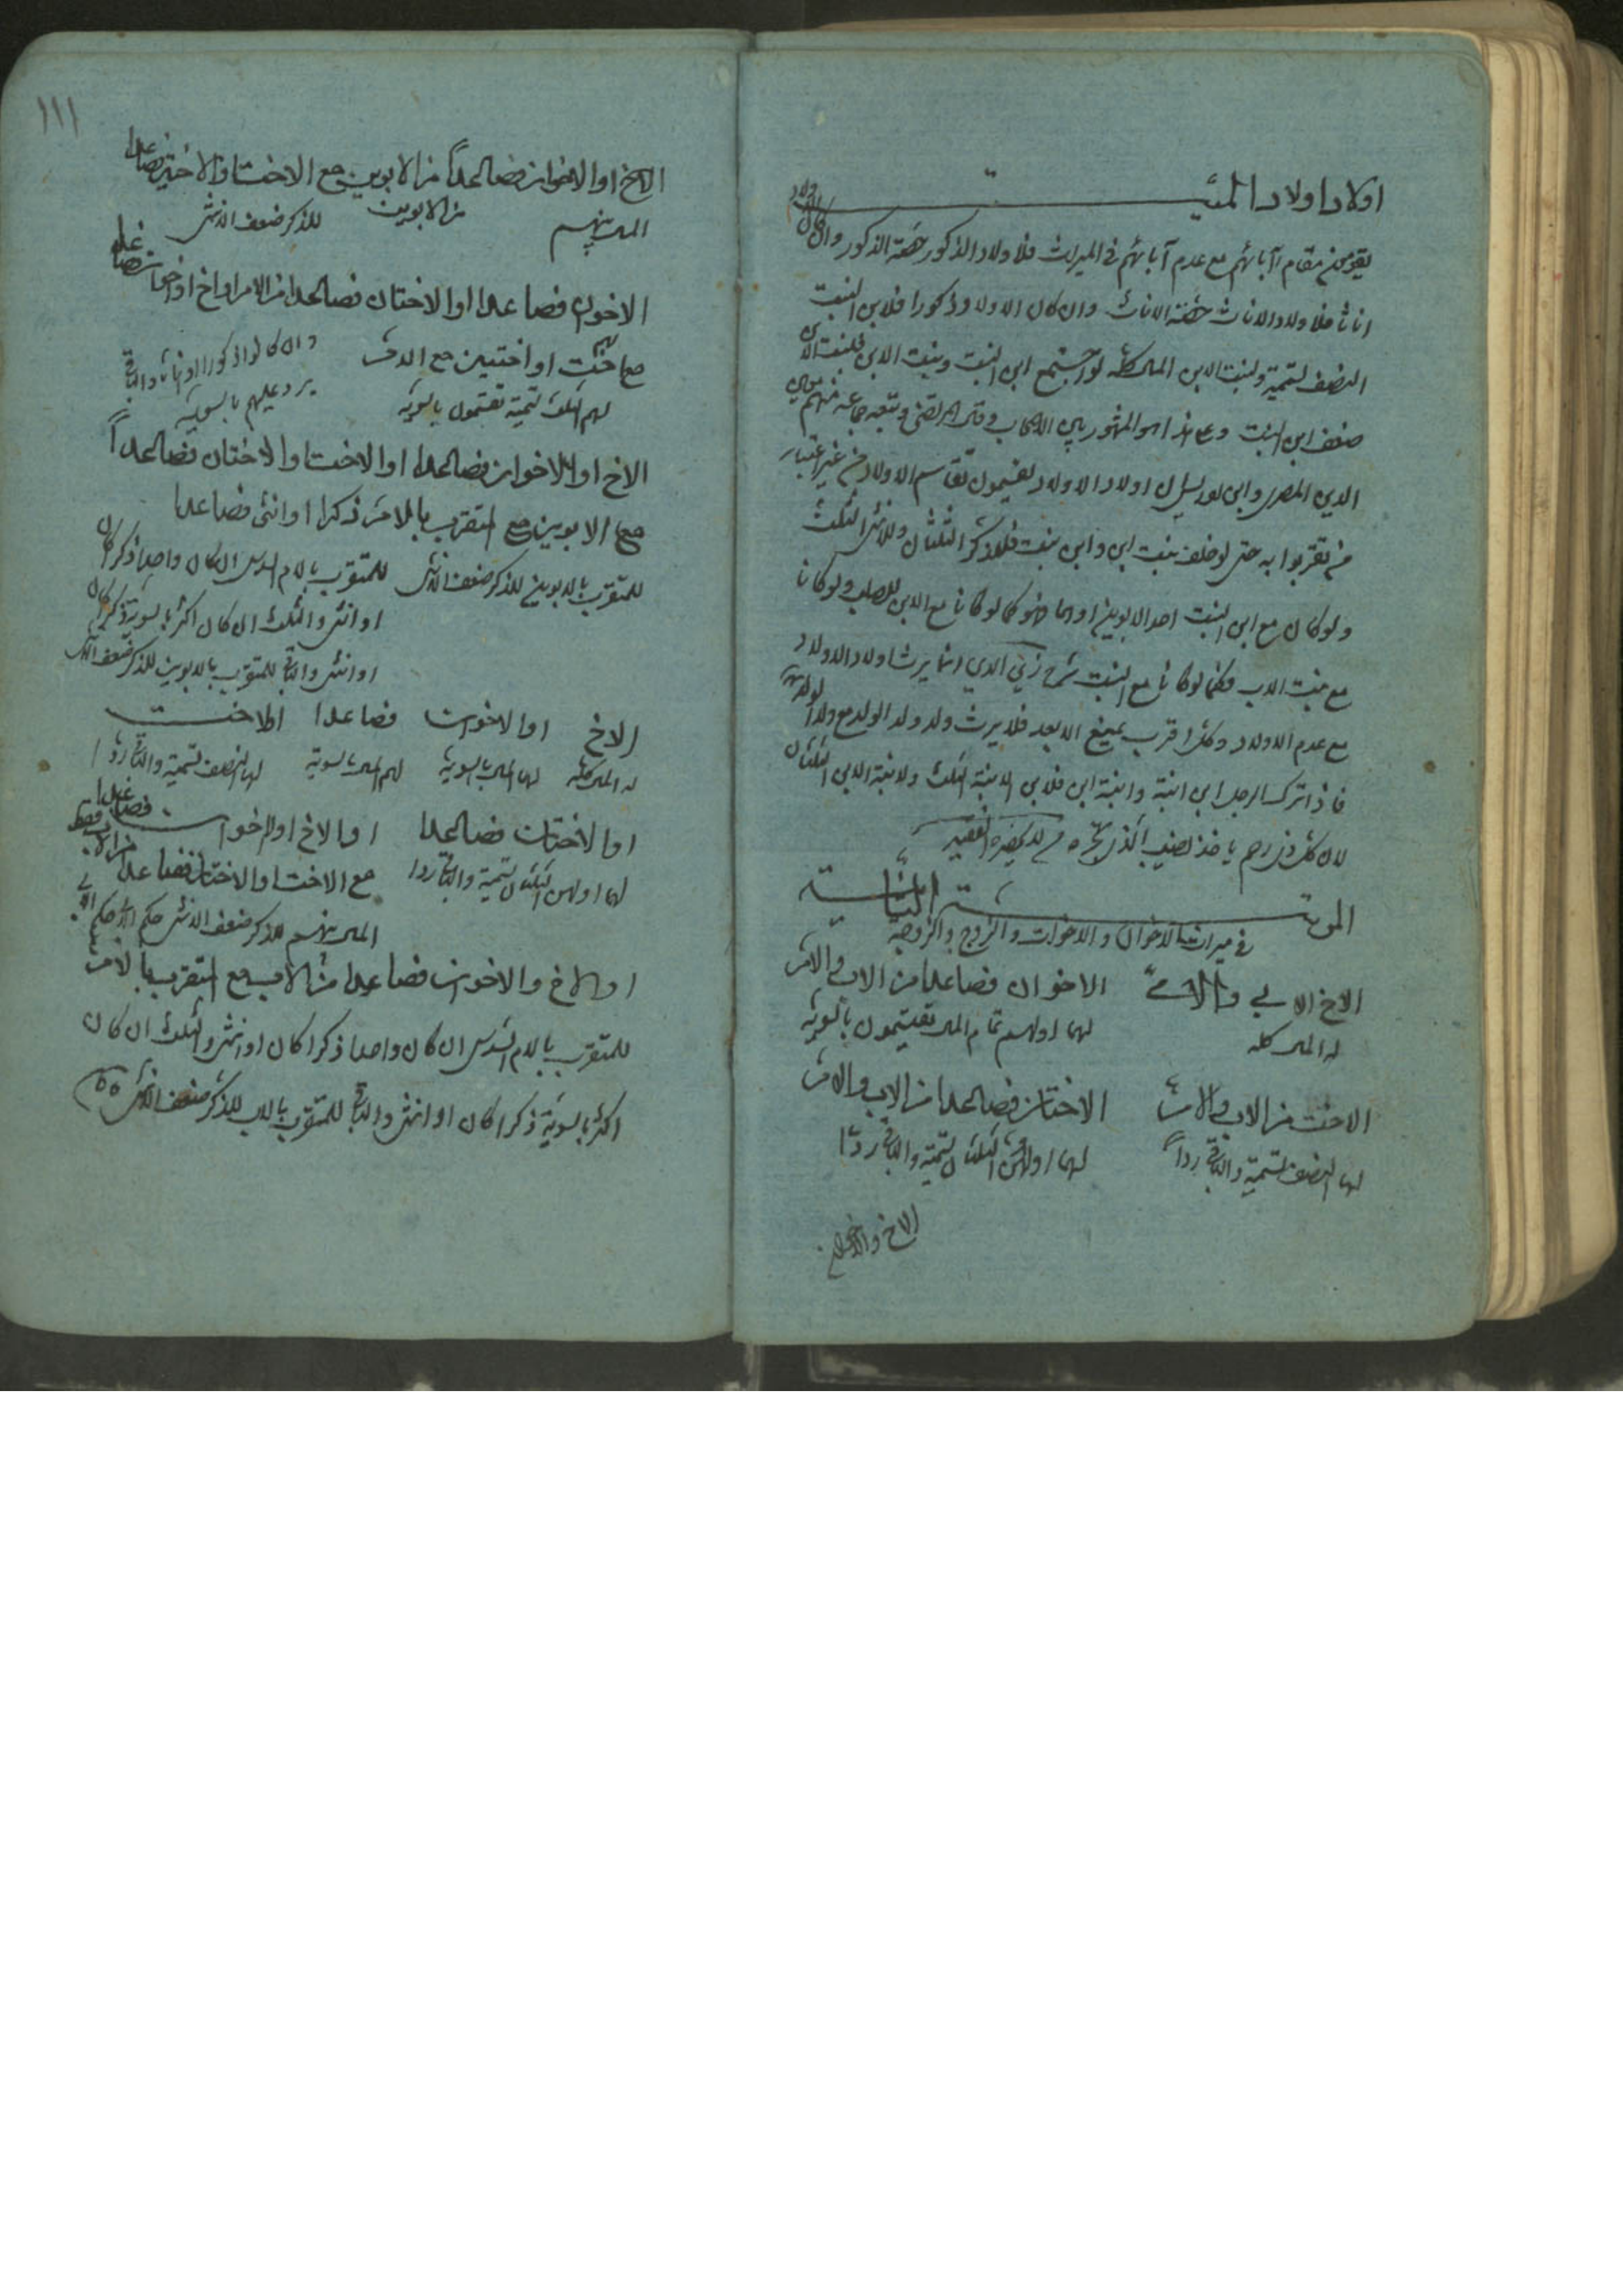 اولاد اولاد الميت
يقومون مقام آبائهم مع عدم آبائهم في الميراث فلاولاد الذكور حصة الذكور وان كان اولاد
اناثا فلاولاد الاناث حصة الاناث وان كان الاولاد ذكورا فلابن البنت
النصف تسمية ولبنت الابن المال كله لو اجتمع ابن البنت وبنت الابن فلبنت الابن
ضعف ابن البنت وما هذا هو المشهور بين الاصحاب وقال المرتضى وتبعه جماعة منهم معين
الدين المصري وابن ادريس ان اولاد الاولاد يقتسمون تقاسم الاولاد من غير اعتبار
من تقربوا به حتى لو خلف بنت ابن وابن بنت فللذكر الثلثان وللانثى الثلث
ولو كان مع ابن البنت احد الابوين او هما فهو كما لو كانا مع الابن للصلب ولو كانا
مع بنت الابن فكما لو كانا مع البنت شرح زين الدين انما يرث اولاد الاولاد
مع عدم الاولاد وكل اقرب يمنع الابعد فلا يرث ولد ولد الولد مع ولد الولد
فاذا ترك الرجل ابن ابنة وابنة ابن فلابن الابنة الثلث ولابنة الابن الثلثان
لان كل ذي رحم ياخذ نصيب الذي يجره من لا يحضره الفقيه
المرتبة الثانية
في ميراث الاخوان والاخوات والزوج والزوجة
الاخ الابي والامي الاخوان فصاعدا من الاب والام
له المال كله لهما اولهم تمام المال يقتسمون بالسوية
الاخت من الاب والام الاختان فصاعدا من الاب والام
لها النصف تسمية والباقي ردا لهما اولهن الثلثان تسمية والباقي ردا
الاخ والاخوان
١١١
الاخ او الاخوان فصاعدا من الابوين مع الاخت او الاختين فصاعدا
من الابوين
المال بينهم للذكر ضعف الانثى
الاخوان فصاعدا او الاختان فصاعدا من الام او اخ او اخوان فصاعدا
مع اخت او اختين مع الام
لهم الثلث تسمية يقتسمون بالسوية وان كانوا ذكورا او اناثا والباقي
يرد عليهم بالسوية
الاخ او الاخوان فصاعدا او الاخت او الاختان فصاعداً
مع الابوين مع المتقرب بالام ذكرا او انثى فصاعدا
للمتقرب بالابوين للذكر ضعف الانثى للمتقرب بالام السدس ان كان واحدا ذكرا كان
او انثى والثلث ان كان اكثر بالسوية ذكرا كان
او انثى والباقي للمتقرب بالابوين للذكر ضعف الانثى
الاخ او الاخوان فصاعدا او الاخت
له المال كله لهما المال بالسوية لهم المال بالسوية لها النصف تسمية والباقي ردا
او الاختان فصاعدا او الاخ او الاخوان فصاعدا
لهما اولهن الثلثان تسمية والباقي ردا مع الاخت او الاختان فصاعدا من الاب فقط
المال بينهم للذكر ضعف الانثى حكم
او الاخ والاخوان فصاعدا من الاب مع المتقرب بالام
للمتقرب بالام السدس ان كان واحدا ذكرا كان او انثى والثلث ان كان
اكثر بالسوية ذكرا كان او انثى والباقي للمتقرب بالاب للذكر ضعف الانثى